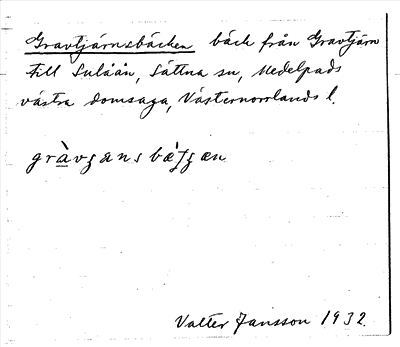 Gravtjärnsbäcken bäck från Gravtjärn
till Sulåån, Sättna sn, Medelpads
västra domsaga, Västernorrlands l.
Valter Jansson 1932.